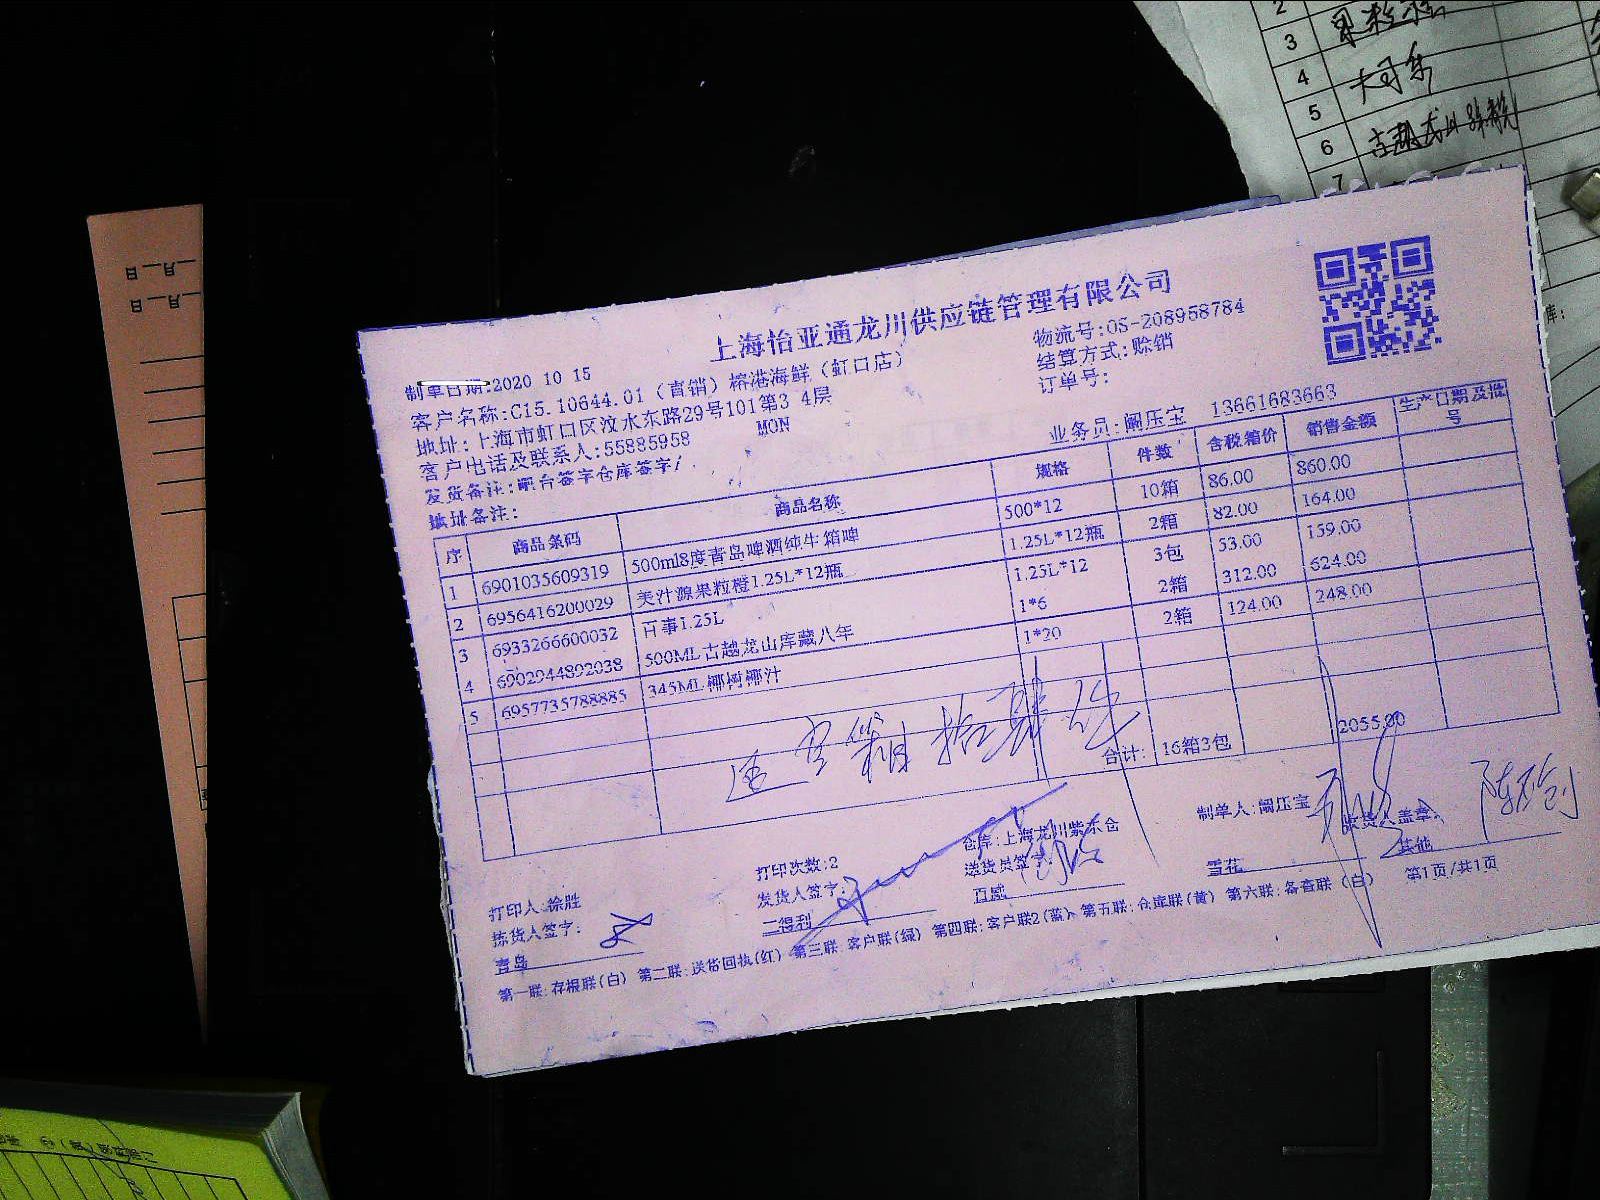 上海怡亚通龙川供应链管理有限公司
制单日期:2020 10 15
物流号:OS-208958784
客户名称:C15.10644.01（直销）榕港海鲜（虹口店）
结算方式:赊销
地址:上海市虹口区汶水东路29号101第3 4层
订单号:
客户电话及联系人:55885958 MON
业务员:阚压宝 13661683663
发货备注:配合签字仓库签字/
地址备注:
序 商品条码 商品名称 规格 件数 含税箱价 销售金额 生产日期及批号
1 6901035609319 500ml8度青岛啤酒纯生箱啤 500*12 10箱 86.00 860.00
2 6956416200029 美汁源果粒橙1.25L*12瓶 1.25L*12瓶 2箱 82.00 164.00
3 6933266600032 百事1.25L 1.25L*12 3包 53.00 159.00
4 6902944892038 500ML古越龙山库藏八年 1*6 2箱 312.00 624.00
5 6957735788885 345ML椰树椰汁 1*20 2箱 124.00 248.00
合计: 16箱3包 2055.00
打印人:徐胜
打印次数:2
仓库:上海龙川紫东仓
制单人:阚压宝
拣货人签字:
发货人签字:
送货员签字:
收货人盖章:
青岛
三得利
百威
雪花
其他
第一联:存根联(白) 第二联:送货回执(红) 第三联:客户联(绿) 第四联:客户联2(蓝) 第五联:仓库联(黄) 第六联:备查联(白) 第1页/共1页
2
3
4
5
6 古越龙山
7
日__月__
日__月__